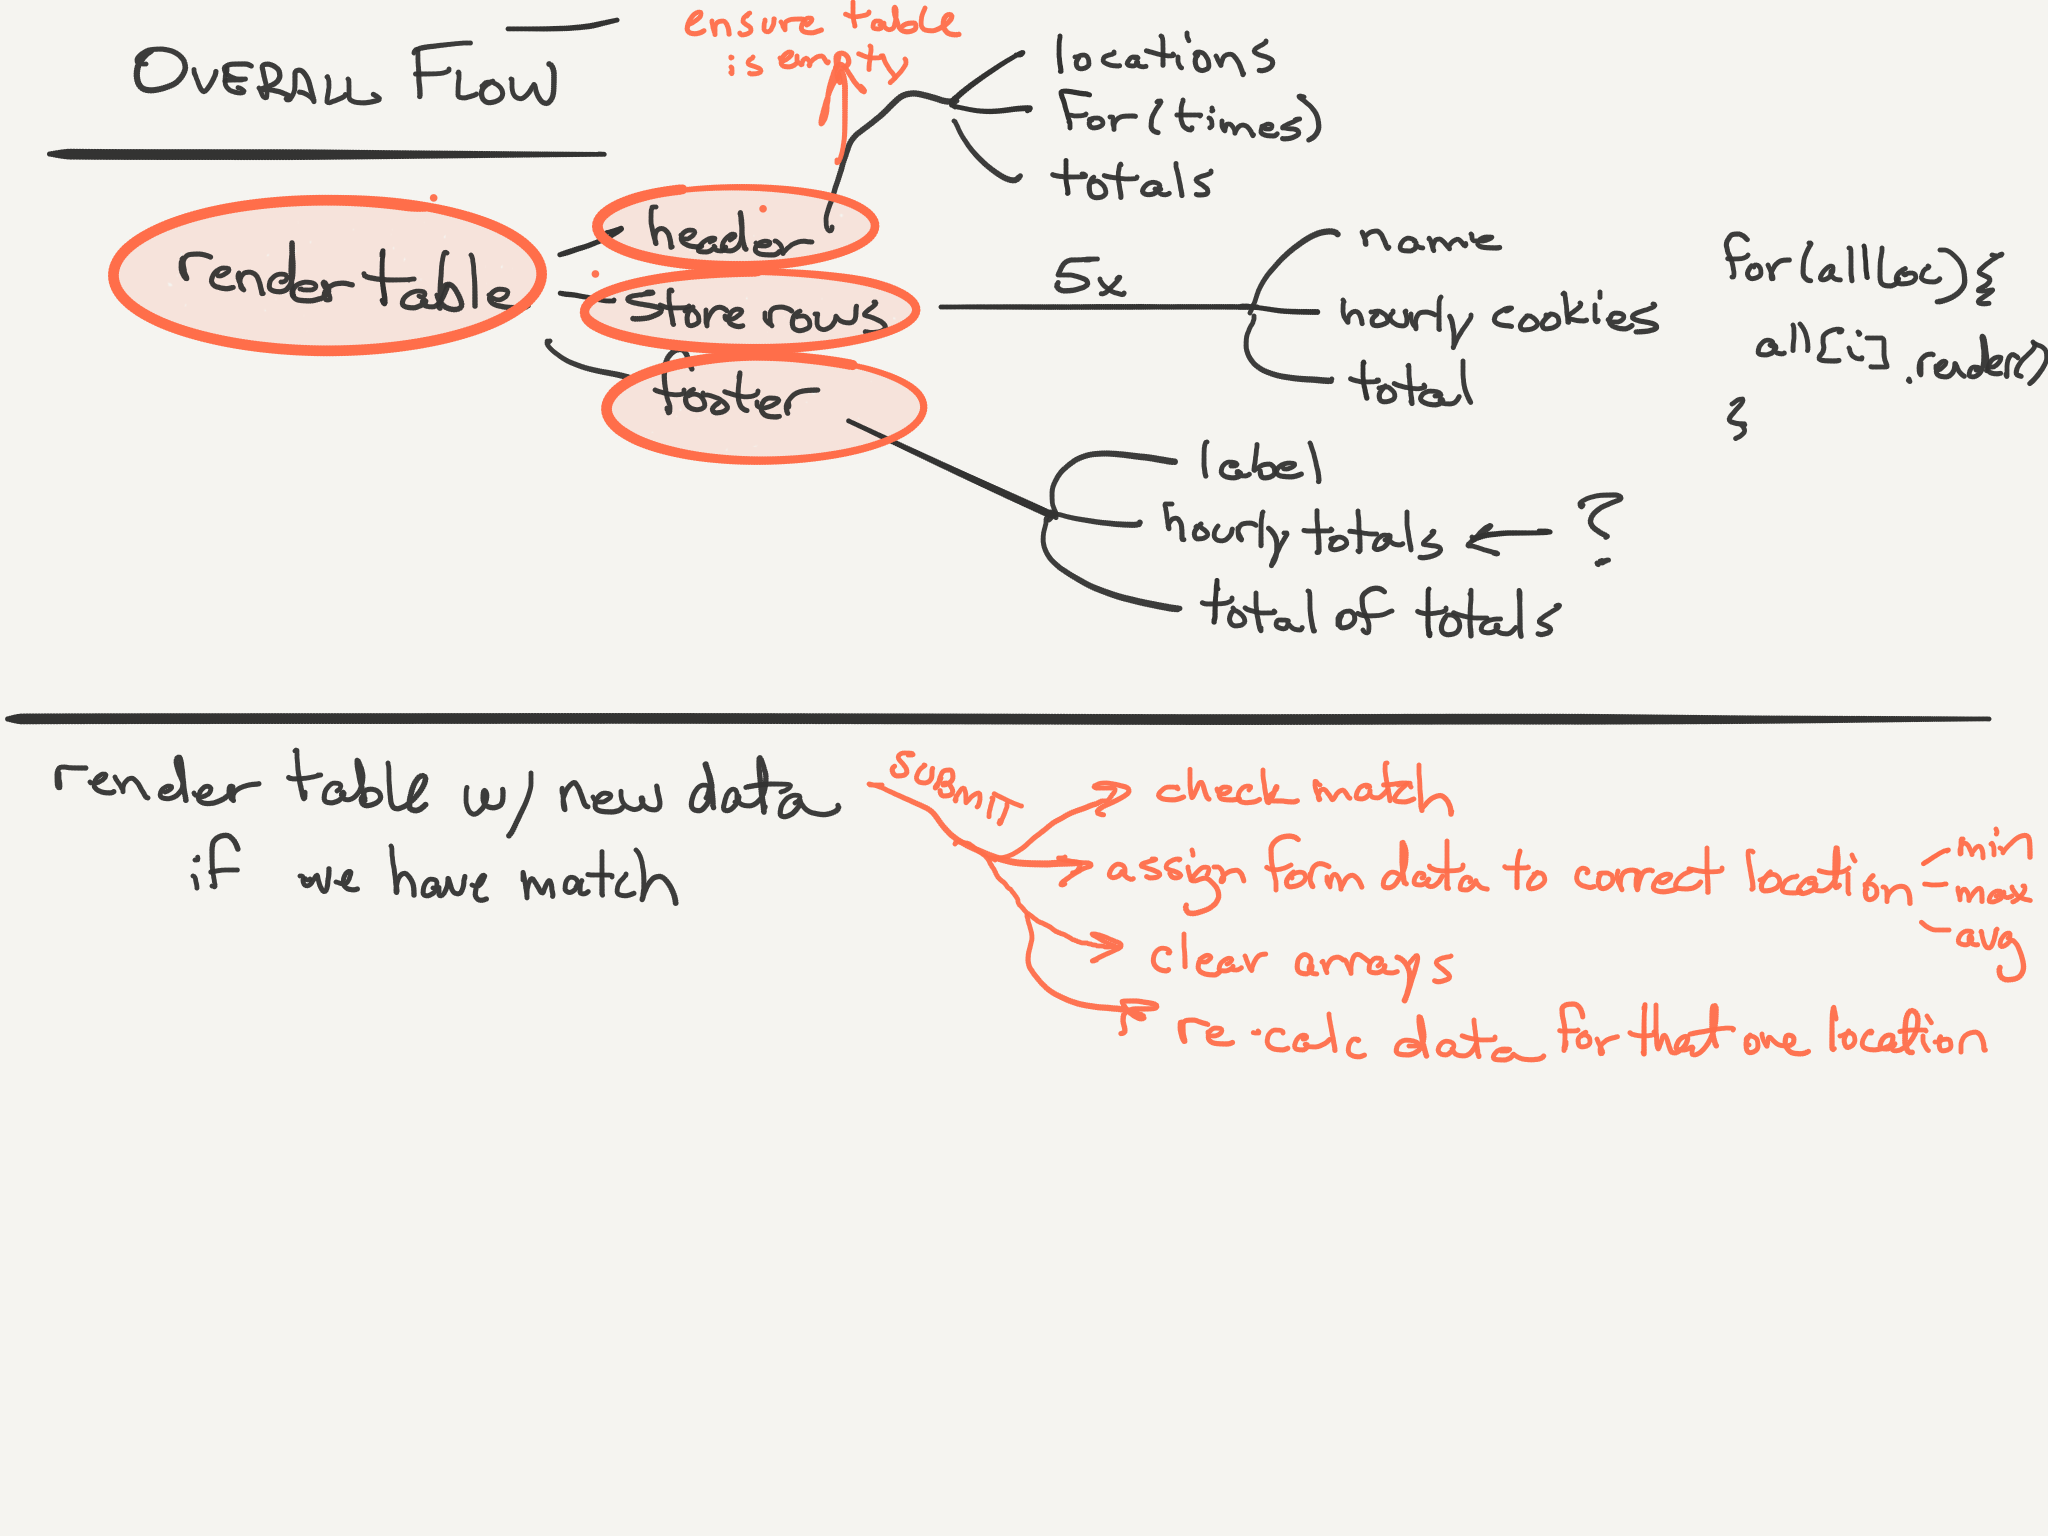 OVERALL FLOW
ensure table
is empty
locations
For(times)
totals
render table
header
store rows
footer
5x
name
hourly cookies
total
for(allLoc){
all[i].render()
}
label
hourly totals ← ?
total of totals
render table w/ new data
if we have match
SUBMIT
check match
assign form data to correct location
min
max
avg
clear arrays
re-calc data for that one location